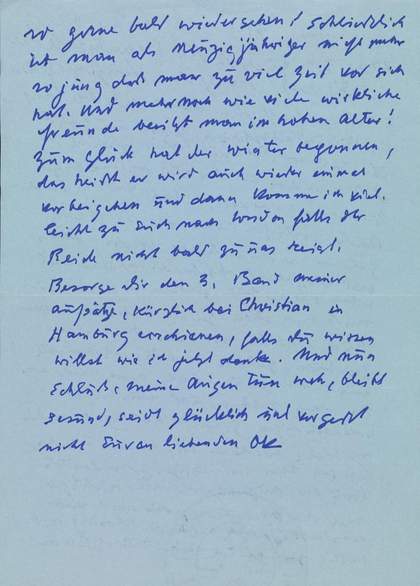 so gerne bald wiedersehen! Schliesslich
ist man als neunzigjähriger nicht mehr
so jung daß man zu viel Zeit vor sich
hat. Und mehr noch wie viele wirkliche
Freunde besitzt man im hohen Alter!
Zum Glück hat der Winter begonnen,
das heißt er wird auch wieder einmal
vorbeigehen und dann komme ich viel-
leicht zu Euch nach London falls Ihr
Beide nicht bald zu uns reist.
Besorge Dir den 3. Band meiner
Aufsätze, kürzlich bei Christian in
Hamburg erschienen, falls du wissen
willst wie ich jetzt denke. Und nun
Schluß, meine Augen tun weh, bleibt
gesund, seid glücklich und vergesst
nicht Euren liebenden OK